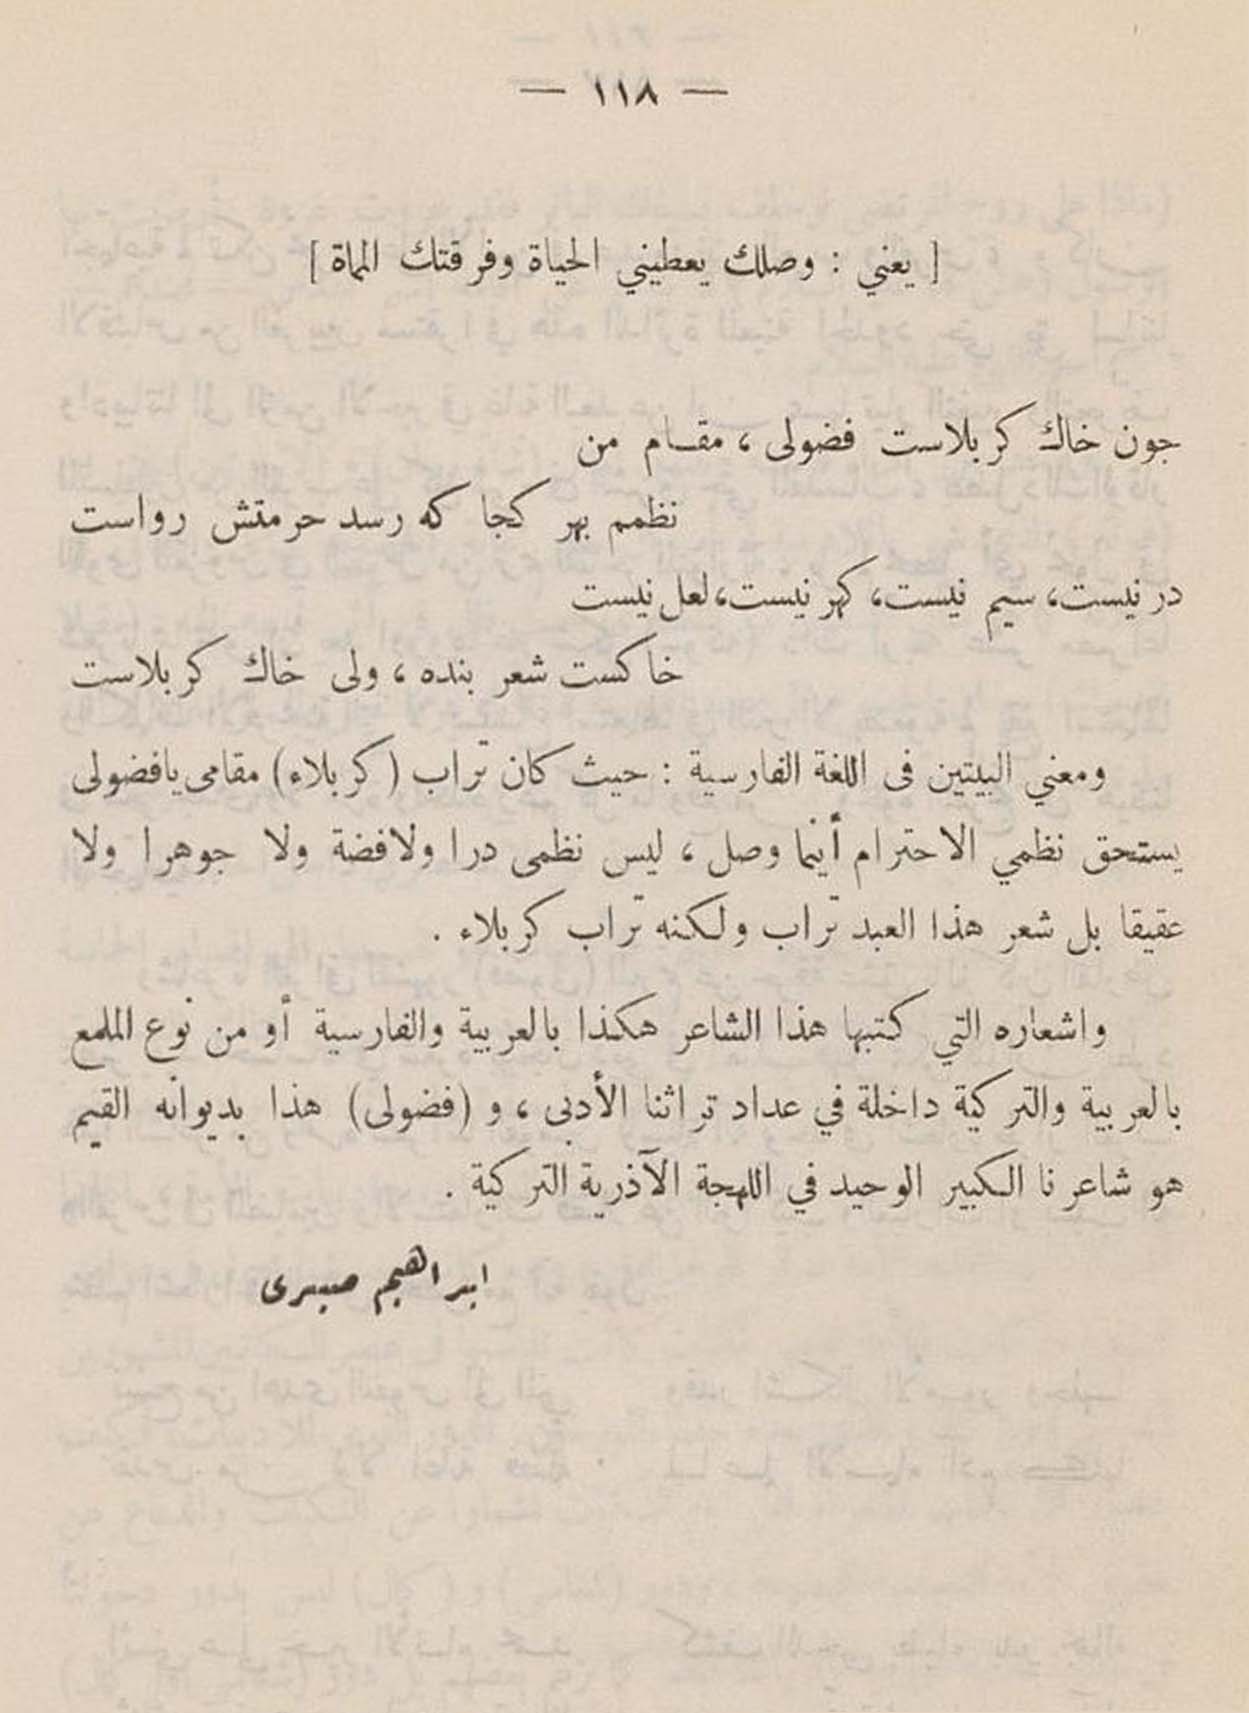 — ١١٨ —
[ يعني : وصلك يعطيني الحياة وفرقتك المماة ]
جون خاك كربلاست فضولى ، مقام من
نظمم بهر كجا كه رسد حرمتش رواست
در نيست، سيم نيست، كهر نيست، لعل نيست
خاكست شعر بنده ، ولى خاك كربلاست
ومعني البيتين فى اللغة الفارسية : حيث كان تراب (كربلاء) مقامى يافضولى
يستحق نظمي الاحترام أينما وصل ، ليس نظمى درا ولافضة ولا جوهرا ولا
عقيقا بل شعر هذا العبد تراب ولكنه تراب كربلاء .
واشعاره التي كتبها هذا الشاعر هكذا بالعربية والفارسية أو من نوع الملمع
بالعربية والتركية داخلة في عداد تراثنا الأدبى ، و (فضولى) هذا بديوانه القيم
هو شاعرنا الكبير الوحيد في اللهجة الآذرية التركية .
ابراهيم صبرى